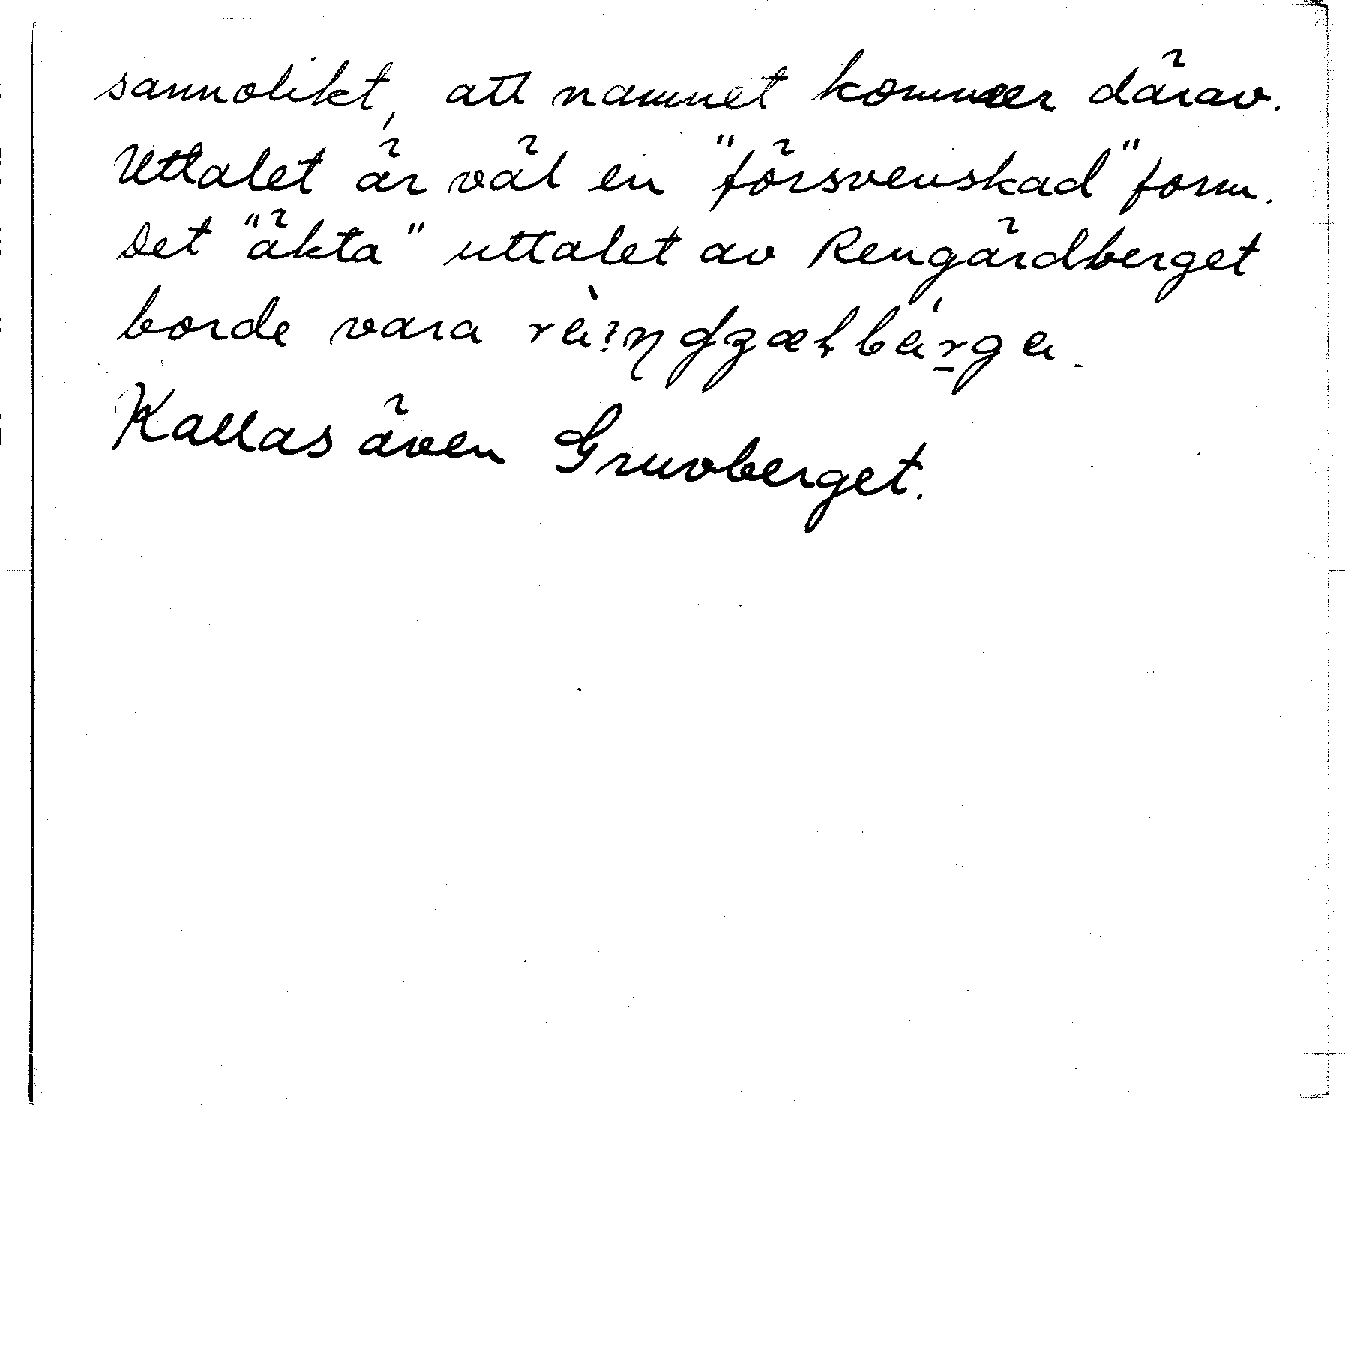 sannolikt, att namnet kommer därav.
Uttalet är väl en "försvenskad" form.
Det "äkta" uttalet av Rengärdberget
borde vara
Kallas även Gruvberget.